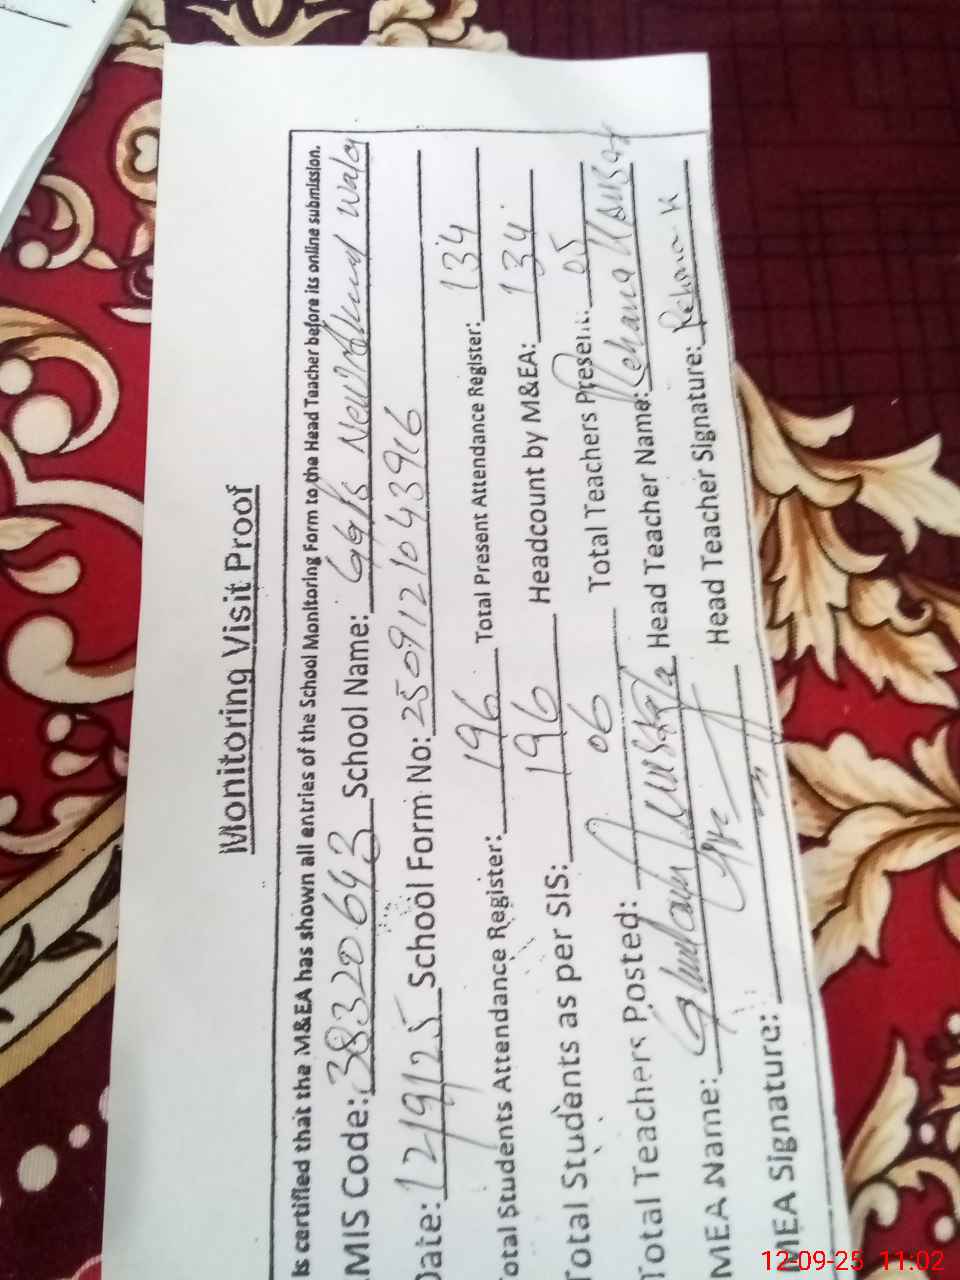 Monitoring Visit Proof
is certified that the M&EA has shown all entries of the School Monitoring Form to the Head Teacher before its online submission.
MIS Code: 38320643 School Name: GGPS New Wala
Date: 12/9/25 School Form No: 2509121043916
Total Students Attendance Register: 196 Total Present Attendance Register: 134
Total Students as per SIS: 196 Headcount by M&EA: 134
Total Teachers Posted: 06 Total Teachers Present: 05
MEA Name: Ghulam Mustafa Head Teacher Name: Rehana Kausar
MEA Signature: Head Teacher Signature: Rehana K
12-09-25 11:02